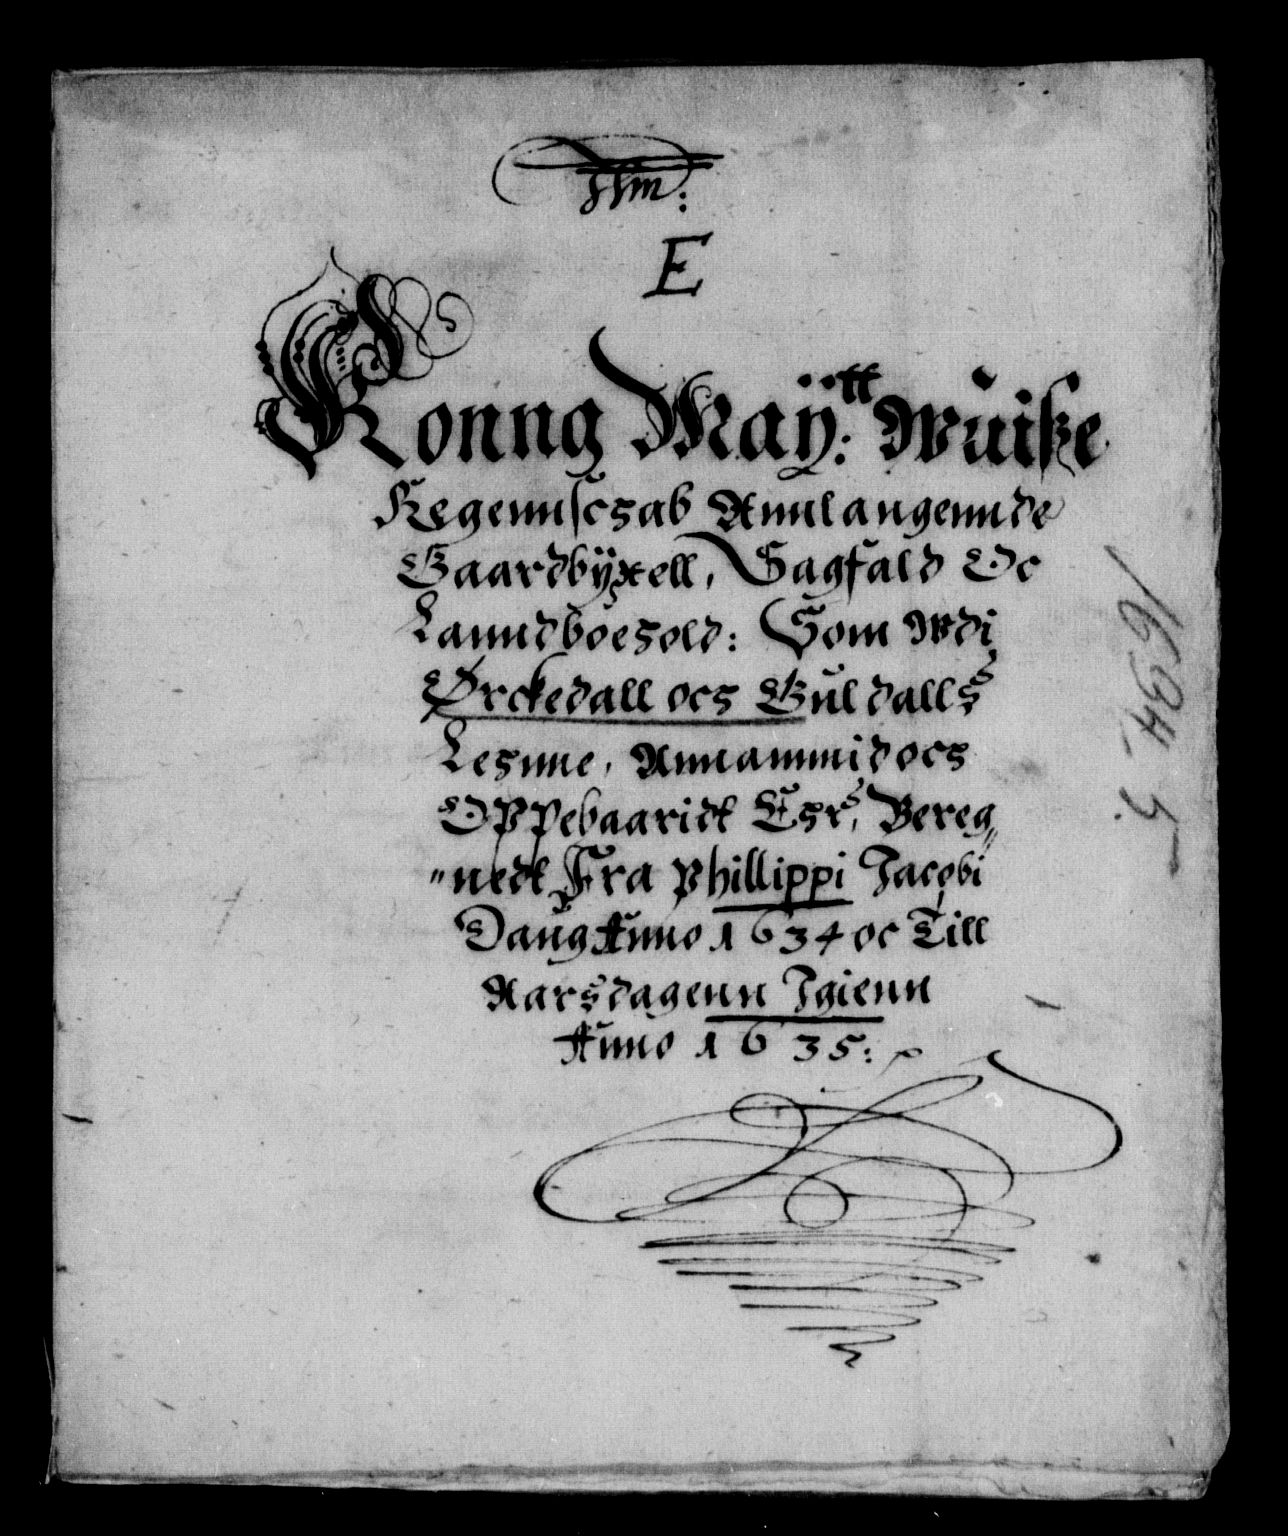 E
Konng May:tt Wuisze
Regennschab Annlangennde
Gaardbÿxell, Sagfald Oc
Lanndboehold: Som Wdi
Ørckedall och Guldalls
Lehnne, Annammid och
Oppebaaridt Ehrs, Bereg„
„nedt Fra Phillippi Jacobi
Daug Anno 1634 oc Till
Aarsdagenn Igienn
Anno 1635:
1634-5